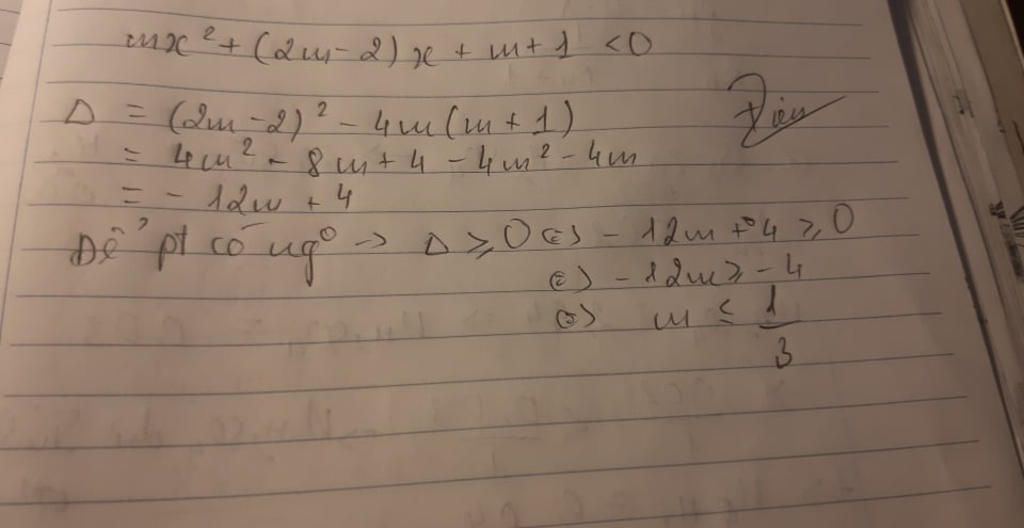 mx² + (2m - 2)x + m + 1 < 0
Δ = (2m - 2)² - 4m(m + 1)
= 4m² - 8m + 4 - 4m² - 4m
= - 12m + 4
Để pt có ngº → Δ ≥ 0 (=) - 12m + 4 ≥ 0
(=) - 12m ≥ - 4
(=) m ≤ 1/3